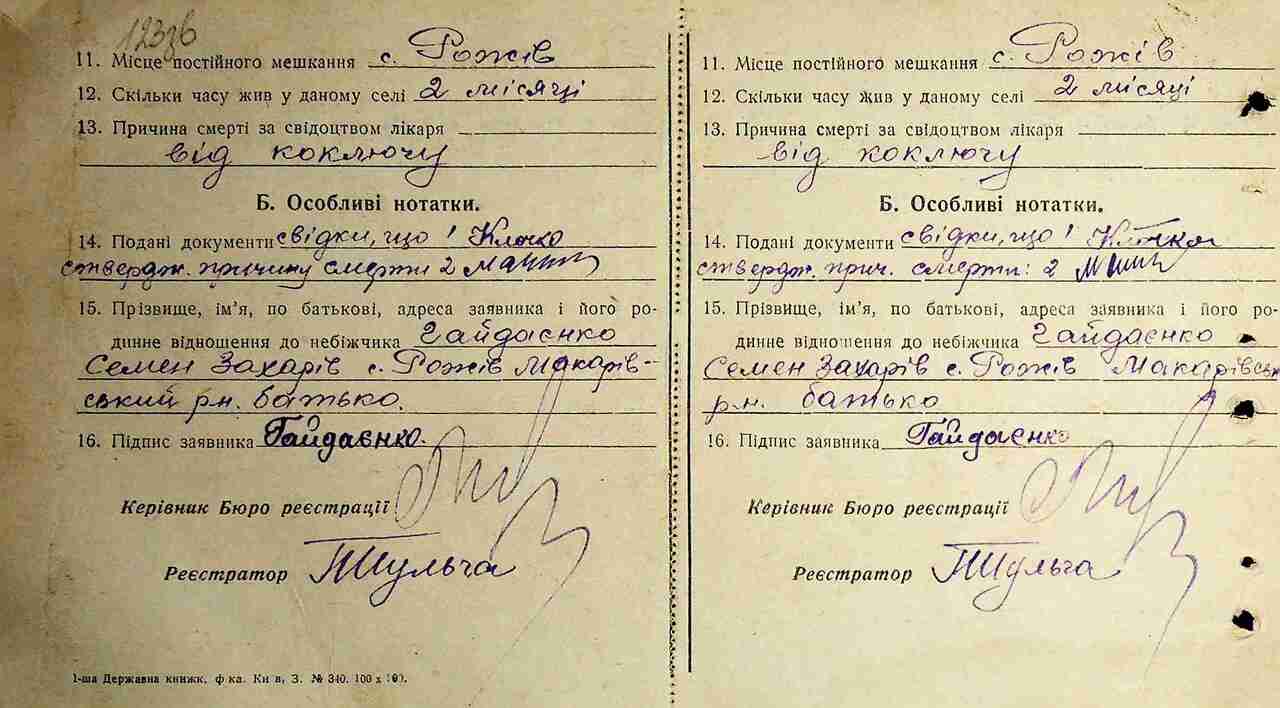 123зв
11. Місце постійного мешкання с. Рожів
12. Скільки часу жив у даному селі 2 місяці
13. Причина смерті за свідоцтвом лікаря
від коключу
Б. Особливі нотатки.
14. Подані документи свідки, що 1 Клочко
ствердж. причину смерти 2
15. Прізвище, ім'я, по батькові, адреса заявника і його ро-
динне відношення до небіжчика Гайдаєнко
Семен Захарів с. Рожів Макарів-
ський рн. батько.
16. Підпис заявника Гайдаєнко.
Керівник Бюро реєстрації
Реєстратор Шульга
1-ша Державна книжк. ф-ка. Київ, З. № 340. 100 x 100.
11. Місце постійного мешкання с. Рожів
12. Скільки часу жив у даному селі 2 місяці
13. Причина смерті за свідоцтвом лікаря
від коключу
Б. Особливі нотатки.
14. Подані документи свідки, що 1
ствердж. прич. смерти: 2
15. Прізвище, ім'я, по батькові, адреса заявника і його ро-
динне відношення до небіжчика Гайдаєнко
Семен Захарів с. Рожів Макарівськ
рн. батько
16. Підпис заявника Гайдаєнко
Керівник Бюро реєстрації
Реєстратор Шульга